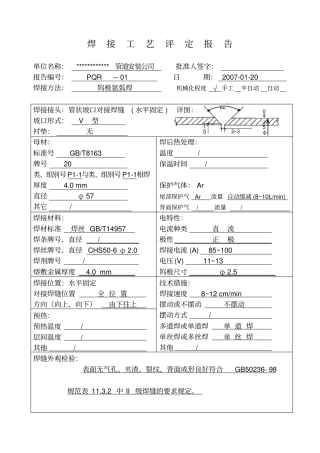 焊 接 工 艺 评 定 报 告
单位名称： ************ 管道安装公司 批准人签字：
报告编号： PQR －01 日 期： 2007-01-20
焊接方法： 钨极氩弧焊 机械化程度 √ 手工 半自动 自动
焊接接头：管状坡口对接焊缝 （ 水平固定） 详图：
坡口形式： V 型
衬垫： 无
60°
2~3
母材： 焊后热处理：
标准号 GB/T8163 温度 /
牌号 20 保温时间 /
类、组别号 P1-1与类、组别号 P1-1相焊
厚度 4.0 mm 保护气体： Ar
直径 φ57 尾部保护气 Ar 流量 自动缓减 (8~10L/min)
其它 / 背面保护气 / 流量 /
焊接材料： 电特性：
焊材标准 焊丝 GB/T14957 电流种类 直 流
焊条牌号、直径 / 极性 正 极
焊丝牌号、直径 CHS50-6 φ2.0 焊接电流 (A) 85~100
焊剂牌号 / 电压 (V) 11~13
熔敷金属厚度 4.0 mm 钨极尺寸 φ2.5
焊接位置：水平固定 技术措施：
对接焊缝位置 全 位 置 焊接速度 8~12 cm/min
方向（向上、向下） 由下往上 摆动或不摆动 不摆动
预热： 摆动方式 /
预热温度 / 多道焊或单道焊 单 道 焊
层间温度 / 单丝焊或多丝焊 单 丝 焊
其他 / 其他 /
焊缝外观检验：
表面无气孔、夹渣、裂纹、背面成形良好符合 GB50236- 98
规范表 11.3.2 中 II 级焊缝的要求规定。